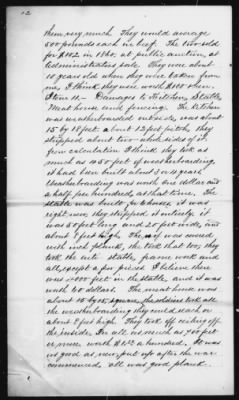 12
them very much. They would average
500 pounds each in beef. The two sold
for $102 in 1860 at public auction, at
Administrators sale. They were about
10 years old when they were taken from
me, I think they were worth $100 then.
Item 11 - Damages to Kitchen, Stable,
Meat house and fencing. The Kitchen
was weatherboarded outside, was about
15 by 18 feet & about 12 feet pitch, they
stripped about two whole sides of it
few calculation I think they took as
much as 1050 feet of weatherboarding.
it had been built about 3 or 4 years
Weatherboarding was worth one dollar and
a half per hundred, at that time. The
stable was built for 6 horses, it was
right new; they stripped it entirely it
was 50 feet long and 20 feet wide, and
about 8 feet high. The roof was covered
with inch plank, they took that too; they
took the entire stable, frame work and
all, except a few pieces. I believe there
was 5000 feet in the stable, and it was
worth 60 dollars. The meat house was
about 15 by 15 square, the soldiers took all
the weatherboarding they could reach or
about 8 feet high. They took off ceiling off
the inside. In all as much as 700 feet
of plank, worth $1.50 a hundred. It was
as good as new, put up after the war
commenced, all was good plank.